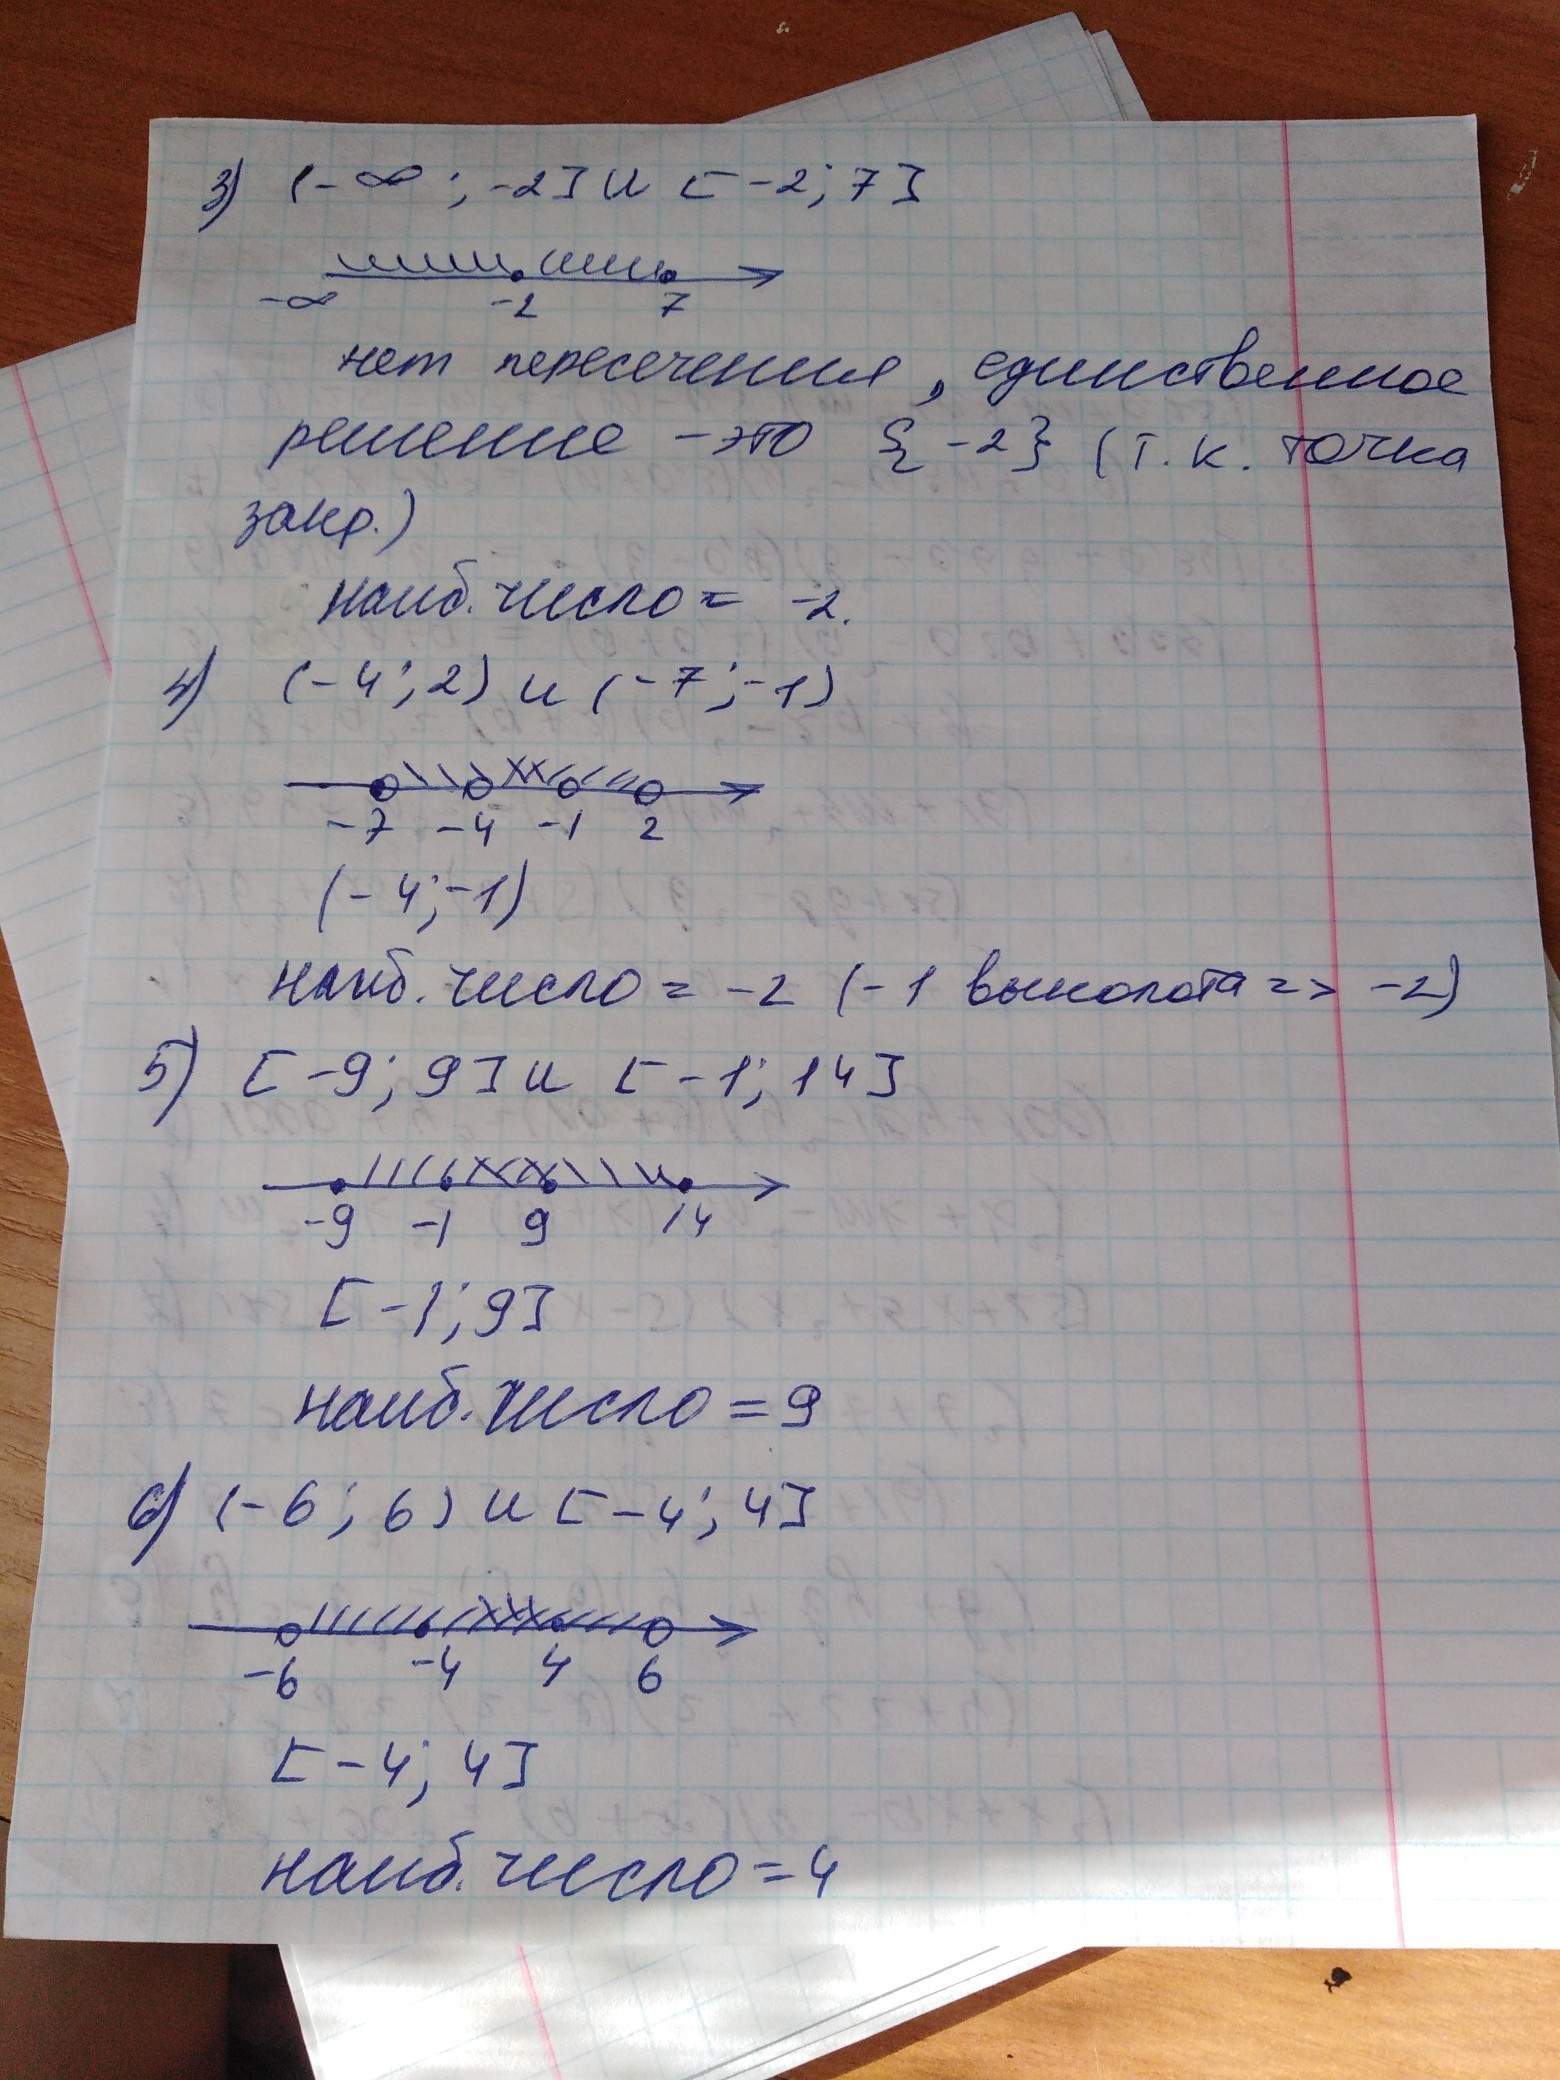 3) (-∞; -2] и [-2; 7]
-∞ -2 7
нет пересечения, единственное
решение - это {-2} (т.к. точка
закр.)
наиб. число = -2.
4) (-4; 2) и (-7; -1)
-7 -4 -1 2
(-4; -1)
наиб. число = -2 (-1 выколота => -2)
5) [-9; 9] и [-1; 14]
-9 -1 9 14
[-1; 9]
наиб. число = 9
6) (-6; 6) и [-4; 4]
-6 -4 4 6
[-4; 4]
наиб. число = 4